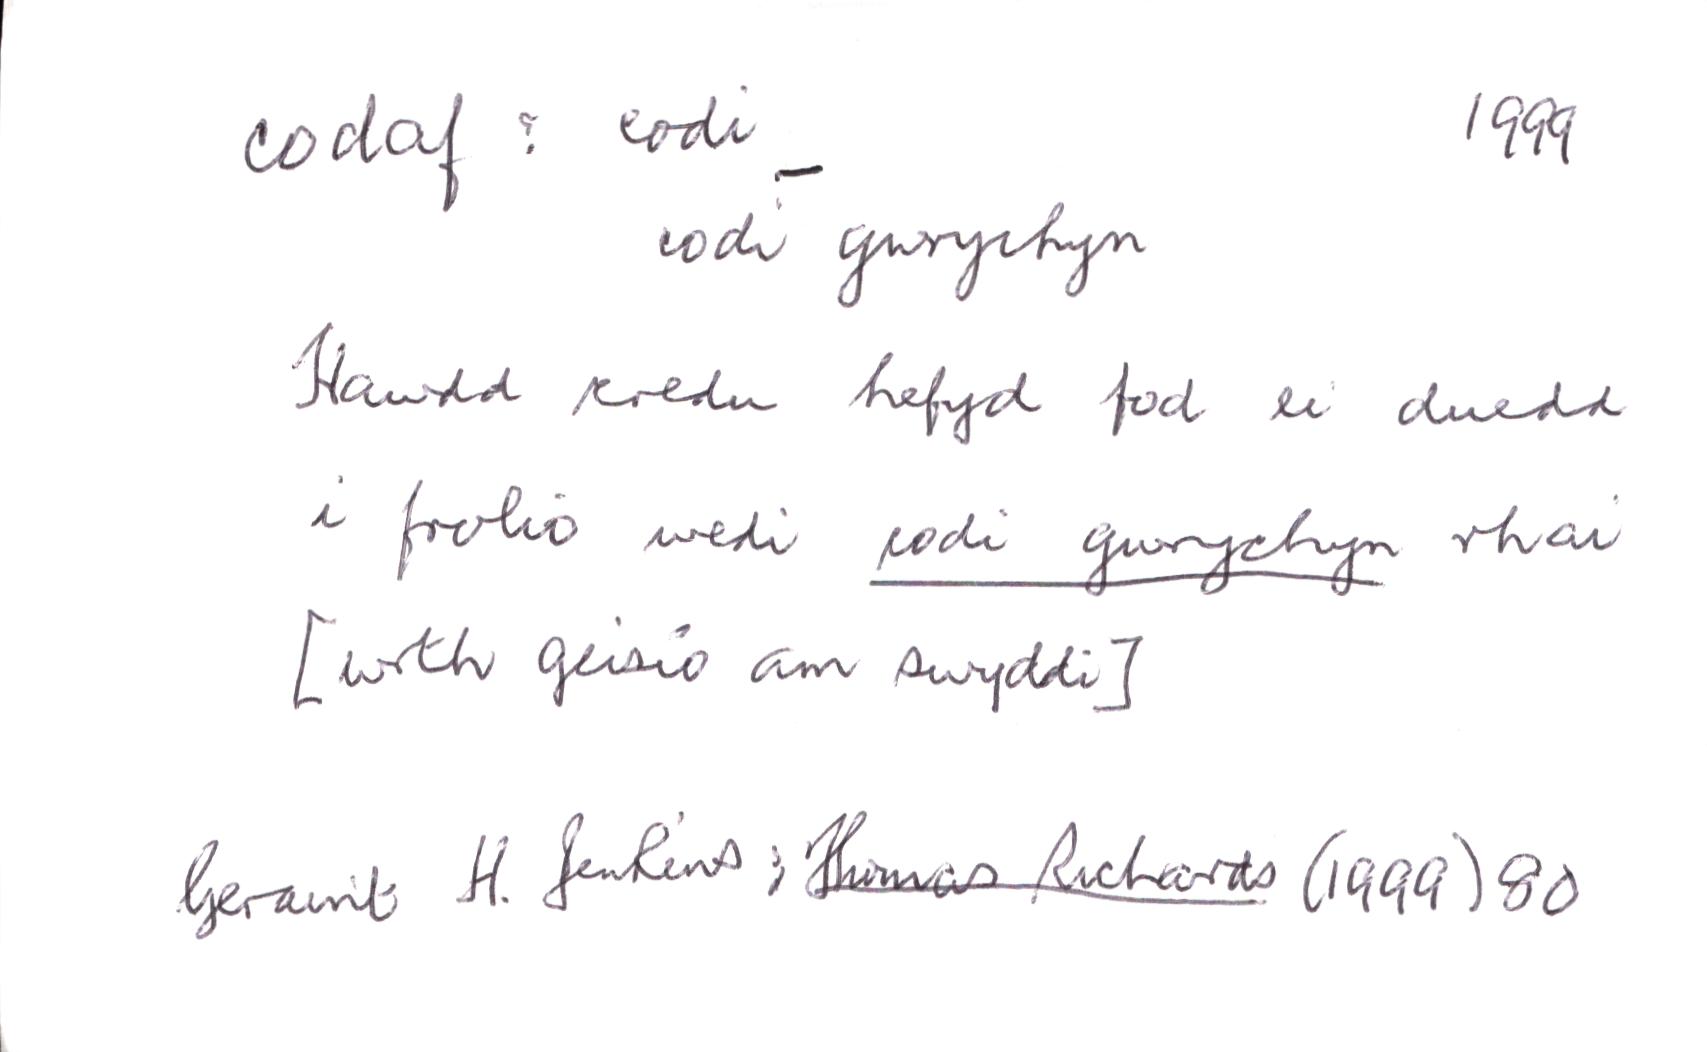 codaf : codi 1999
codi gwrychyn
Hawdd credu hefyd fod ei duedd
i frolio wedi codi gwrychyn rhai
[wrth geisio am swyddi]
Geraint H. Jenkins ; Thomas Richards (1999) 80